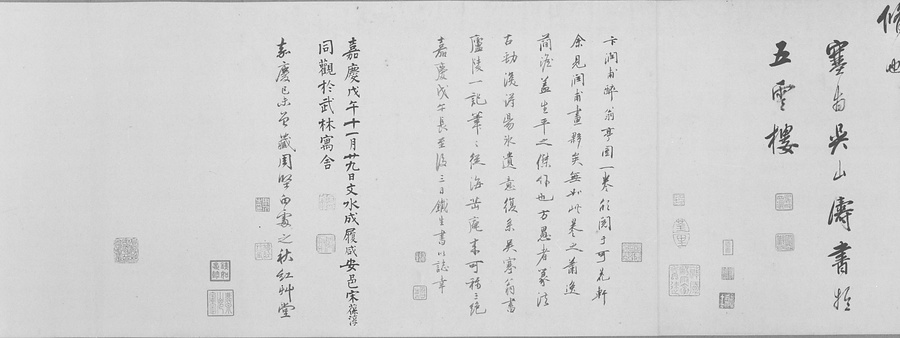 脩也
塞翁吳山濤書於
五雲樓
卞潤甫醉翁亭圖一卷欣閱于可花軒
余見潤甫畫夥矣無如此卷之蕭逸
簡澹蓋生平之傑作也方愚者篆法
古勁深得陽冰遺意復系吳塞翁書
廬陵一記筆〻從海岳庵來可稱三絕
嘉慶戊午長至後三日鐵生書以誌幸
嘉慶戊午十一月廿九日文水成履咸安邑宋葆淳
同觀於武林寓舍
嘉慶己未曾藏周堅白處之秋紅艸堂